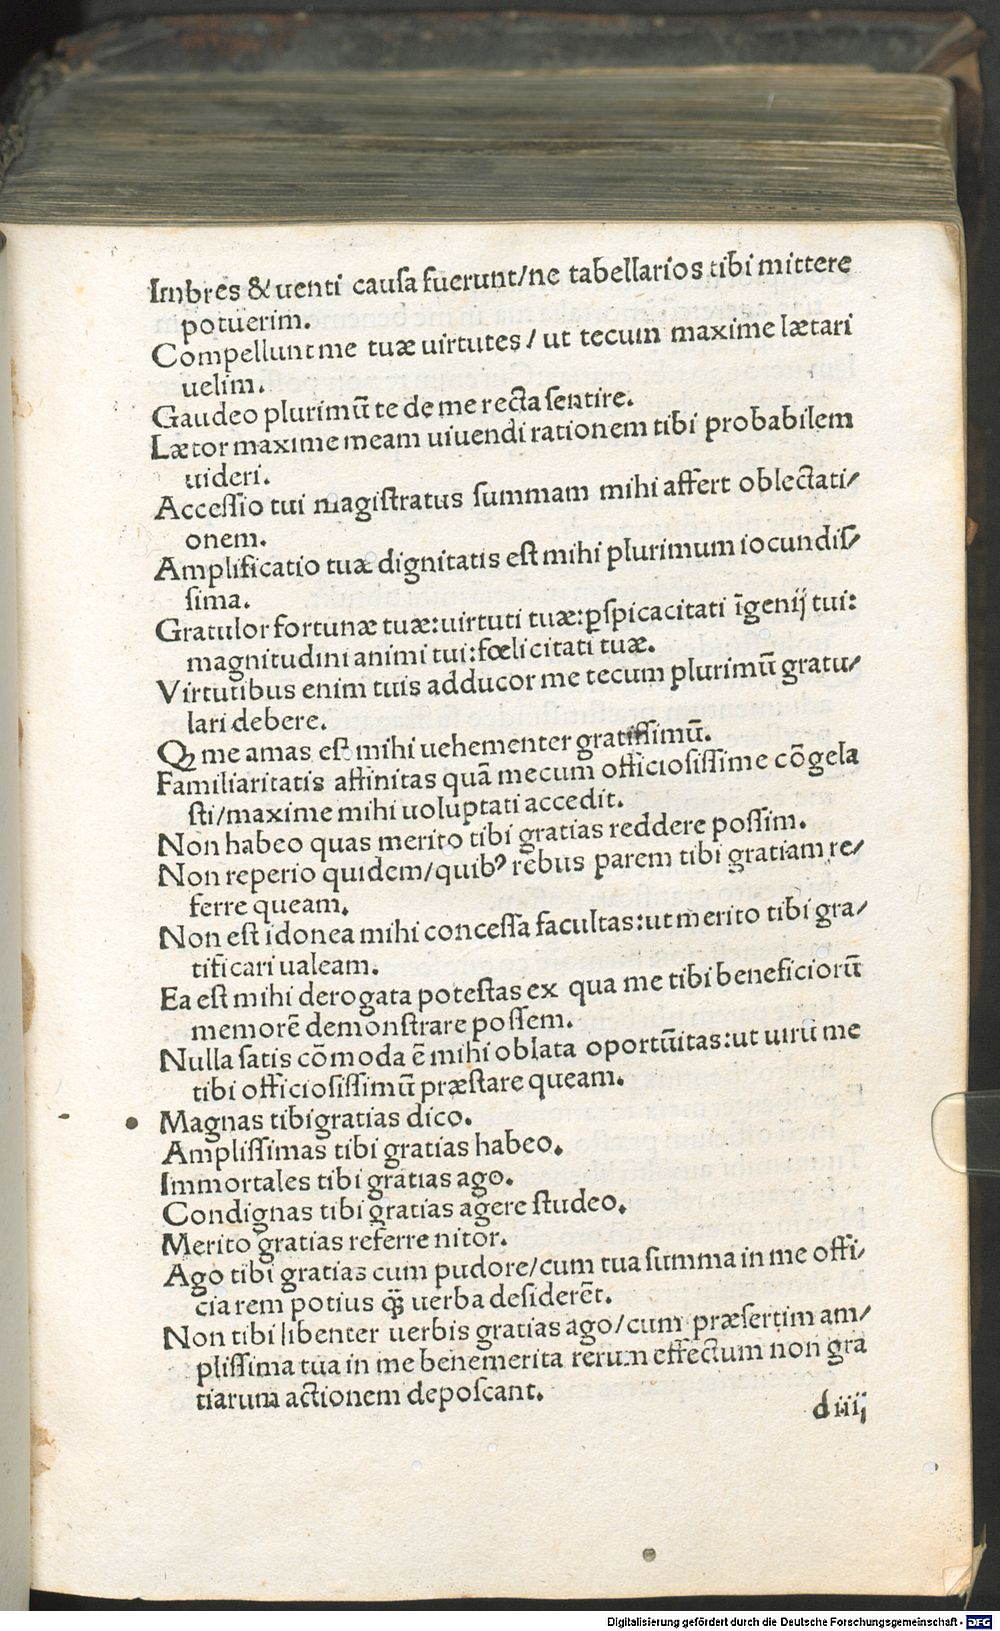 Imbres & uenti causa fuerunt/ne tabellarios tibi mittere
potuerim.
Compellunt me tuæ uirtutes / ut tecum maxime lætari
uelim.
Gaudeo plurimū te de me recta sentire.
Lætor maxime meam uiuendi rationem tibi probabilem
uideri.
Accessio tui magistratus summam mihi affert oblectati/
onem.
Amplificatio tuæ dignitatis est mihi plurimum iocundis/
sima.
Gratulor fortunæ tuæ:uirtuti tuæ:ꝑspicacitati īgenij tui:
magnitudini animi tui:fœlicitati tuæ.
Virtutibus enim tuis adducor me tecum plurimū gratu/
lari debere.
Qꝫ me amas est mihi uehementer gratissimū.
Familiaritatis affinitas quā mecum officiosissime cōgela
sti/maxime mihi uoluptati accedit.
Non habeo quas merito tibi gratias reddere possim.
Non reperio quidem/quibꝰ rebus parem tibi gratiam re/
ferre queam.
Non est idonea mihi concessa facultas:ut merito tibi gra/
tificari ualeam.
Ea est mihi derogata potestas ex qua me tibi beneficiorū
memorē demonstrare possem.
Nulla satis cōmoda ē mihi oblata oportūitas:ut uirū me
tibi officiosissimū præstare queam.
Magnas tibi gratias dico.
Amplissimas tibi gratias habeo.
Immortales tibi gratias ago.
Condignas tibi gratias agere studeo.
Merito gratias referre nitor.
Ago tibi gratias cum pudore/cum tua summa in me offi/
cia rem potius q̄ꝫ uerba desiderēt.
Non tibi libenter uerbis gratias ago/cum præsertim am/
plissima tua in me benemerita rerum effectum non gra
tiarum actionem deposcant.
d iiij
Digitalisierung gefördert durch die Deutsche Forschungsgemeinschaft - DFG